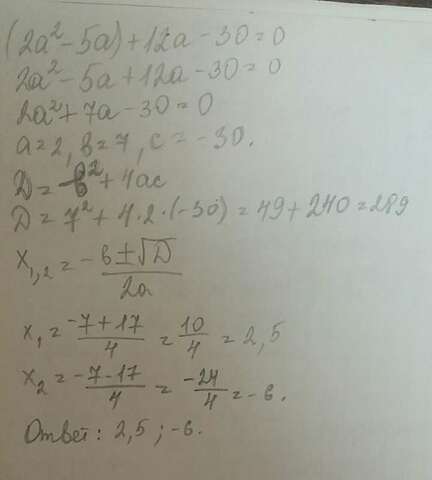 (2a² - 5a) + 12a - 30 = 0
2a² - 5a + 12a - 30 = 0
2a² + 7a - 30 = 0
a = 2, b = 7, c = -30.
D = b² + 4ac
D = 7² + 4·2·(-30) = 49 + 240 = 289
x₁,₂ = (-b ± √D) / 2a
x₁ = (-7 + 17) / 4 = 10/4 = 2,5
x₂ = (-7 - 17) / 4 = -24/4 = -6.
Ответ: 2,5 ; -6.